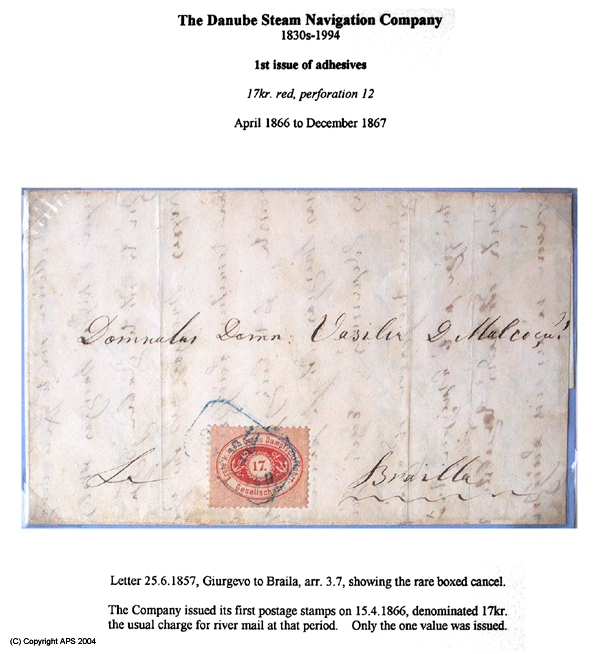 The Danube Steam Navigation Company
1830s-1994
1st issue of adhesives
17kr. red, perforation 12
April 1866 to December 1867
Domnului Domn: Vasilie D. Malcociu
La Brailla
Donau Dampfschiffahrt
17.
Gesellschaft
Letter 25.6.1857, Giurgevo to Braila, arr. 3.7, showing the rare boxed cancel.
The Company issued its first postage stamps on 15.4.1866, denominated 17kr.
the usual charge for river mail at that period. Only the one value was issued.
(C) Copyright APS 2004